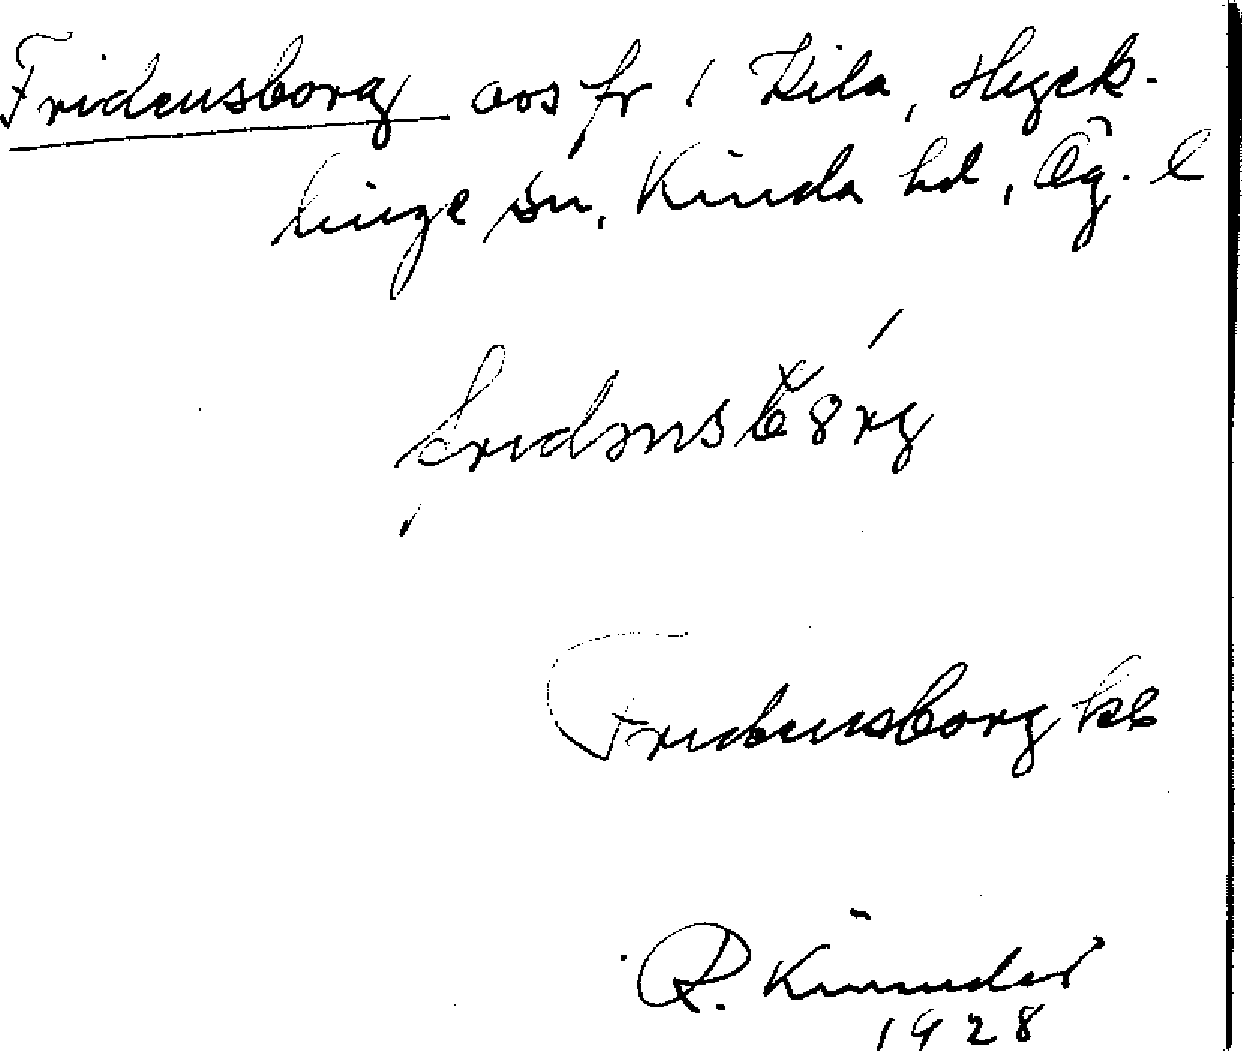 Fridensborg avs fr 1 Kila, Hyck-
linge sn, Kinda hd, Ög. l
fridensbörg
Fridensborg kb
R.
1928